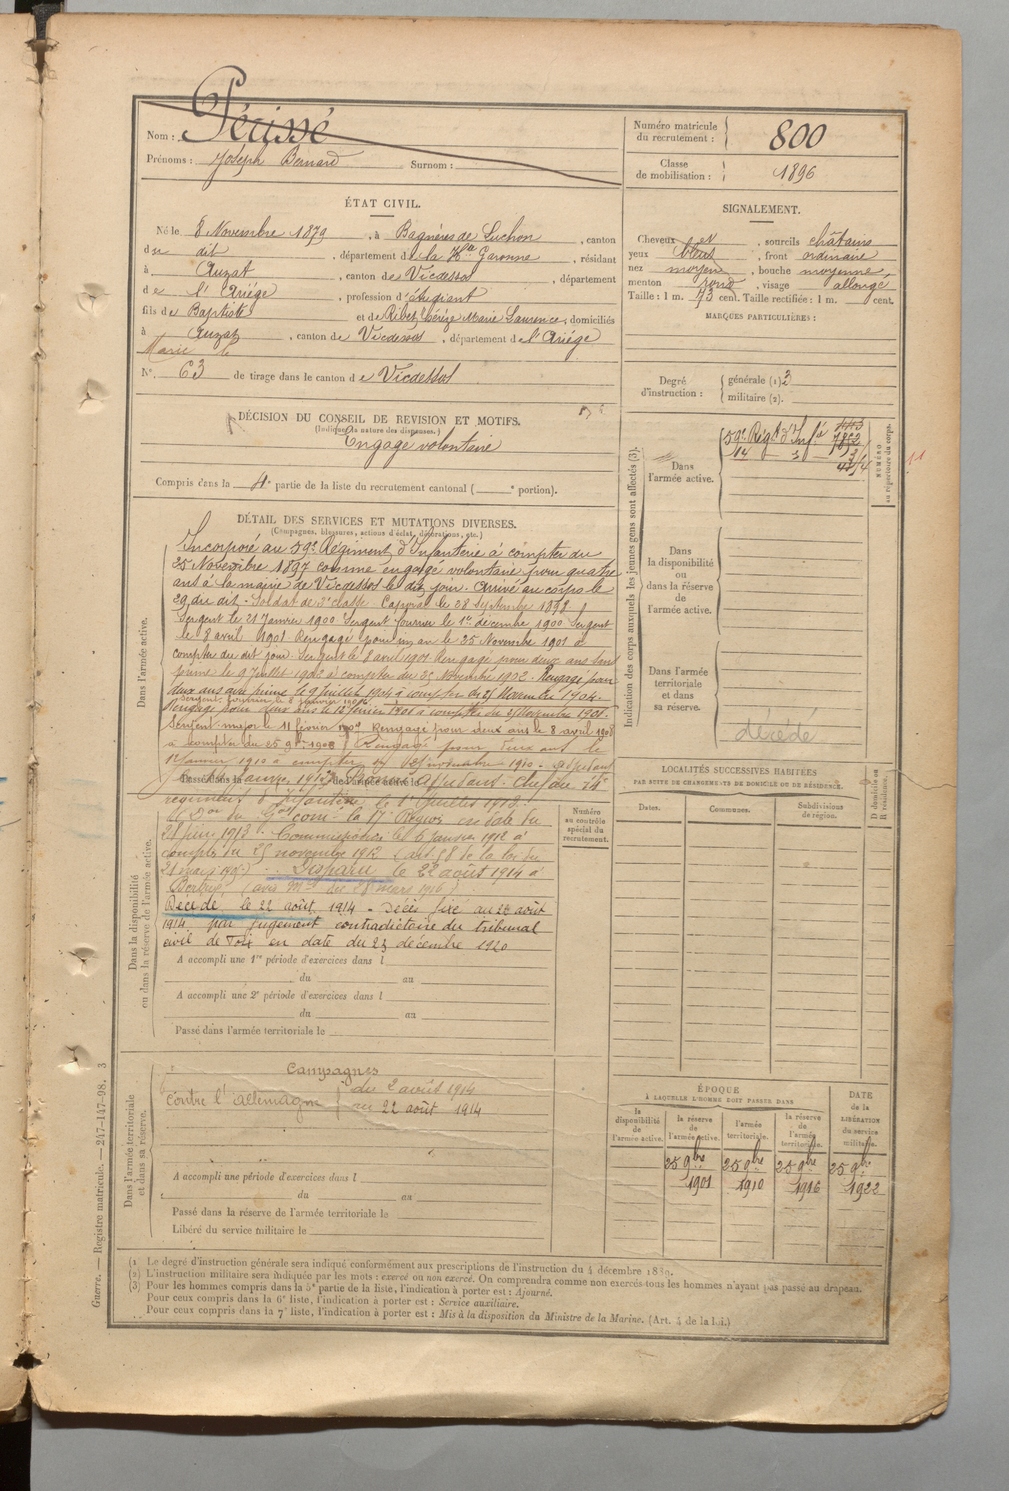 Nom : Périssé
Prénoms : Joseph Bernard Surnom :
Numéro matricule du recrutement : 800
Classe de mobilisation : 1896
ÉTAT CIVIL.
Né le 8 Novembre 1879, à Bagnères de Luchon, canton
du dit, département de la Hte Garonne, résidant
à Auzat, canton de Vicdessos, département
de l'Ariége, profession d'étudiant
fils de Baptiste et de Ribet Thérèze Marie Laurence, domiciliés
à Auzat, canton de Vicdessos, département de l'Ariége
Marié le
N°. 63 de tirage dans le canton de Vicdessos
DÉCISION DU CONSEIL DE REVISION ET MOTIFS.
(Indiquer la nature des dispenses.)
Engagé volontaire
Compris dans la 4e partie de la liste du recrutement cantonal ( e portion).
SIGNALEMENT.
Cheveux et, sourcils châtains
yeux bleus, front ordinaire
nez moyen, bouche moyenne,
menton rond, visage allongé
Taille : 1 m. 73 cent. Taille rectifiée : 1 m. cent.
MARQUES PARTICULIÈRES :
Degré d'instruction : générale (1) 3
militaire (2).
DÉTAIL DES SERVICES ET MUTATIONS DIVERSES.
(Compagnes, blessures, actions d'éclat, décorations, etc.)
Dans l'armée active.
Incorporé au 59e Régiment d'Infanterie à compter du
25 Novembre 1897 comme engagé volontaire pour quatre
ans à la mairie de Vicdessos le dit jour. Arrivé au corps le
29 du dit. Soldat de 2e classe. Caporal le 28 Septembre 1898.
Sergent le 21 Janvier 1900. Sergent fourrier le 1er décembre 1900. Sergent
le 8 avril 1901. Rengagé pour un an le 25 Novembre 1901 à
compter du dit jour. Sergent le 8 avril 1901. Rengagé pour deux ans sans
prime le 9 Juillet 1902 à compter du 25 Novembre 1902. Rengagé pour
deux ans avec prime le 9 Juillet 1904 à compter du 25 Novembre 1904.
Sergent fourrier le 8 janvier 1906.
Rengagé pour deux ans le 12 février 1906 à compter du 25 Novembre 1906.
Sergent major le 11 février Rengagé pour deux ans le 8 avril 1908
à compter du 25 9bre 1908. Rengagé pour deux ans le
janvier 1910 à compter du 25 novembre 1910. adjudant
Passé dans la
de l'armée active le
adjudant-chef au 14e
régiment d'Infanterie le 1er Juillet 1913.
Dans la disponibilité ou dans la réserve de l'armée active.
Don du Gal comt la 17e Région en date du
28 juin 1913. Commissionné le 6 janvier 1912 à
compter du 25 novembre 1912 (art. 58 de la loi du
21 mars 1905). Disparu le 22 août 1914 à
Bertrix (avis Mel du 28 mars 1916)
Décédé le 22 août 1914. Décès fixé au 22 août
1914 par jugement contradictoire du tribunal
civil de Foix en date du 23 décembre 1920
A accompli une 1re période d'exercices dans l
du au
A accompli une 2e période d'exercices dans l
du au
Passé dans l'armée territoriale le
Numéro au contrôle spécial du recrutement.
Dans l'armée territoriale et dans sa réserve.
Campagnes
Contre l'allemagne du 2 août 1914
au 22 août 1914
A accompli une période d'exercices dans l
du au
Passé dans la réserve de l'armée territoriale le
Libéré du service militaire le
Indication des corps auxquels les jeunes gens sont affectés (3).
NUMÉRO au répertoire du corps.
Dans l'armée active.
59e Régt d'Infie
14 - 3 -
Dans la disponibilité ou dans la réserve de l'armée active.
Dans l'armée territoriale et dans sa réserve.
décédé
LOCALITÉS SUCCESSIVES HABITÉES
PAR SUITE DE CHANGEMENTS DE DOMICILE OU DE RÉSIDENCE.
D domicile ou R résidence.
Dates. Communes. Subdivisions de région.
ÉPOQUE
À LAQUELLE L'HOMME DOIT PASSER DANS
DATE de la LIBÉRATION du service militaire.
la disponibilité de l'armée active.
la réserve de l'armée active.
l'armée territoriale.
la réserve de l'armée territoriale.
25 9bre 25 9bre 25 9bre 25 9bre
1901 1910 1916 1922
(1) Le degré d'instruction générale sera indiqué conformément aux prescriptions de l'instruction du 4 décembre 1889.
(2) L'instruction militaire sera indiquée par les mots : exercé ou non exercé. On comprendra comme non exercés tous les hommes n'ayant pas passé au drapeau.
(3) Pour les hommes compris dans la 5e partie de la liste, l'indication à porter est : Ajourné.
Pour ceux compris dans la 6e liste, l'indication à porter est : Service auxiliaire.
Pour ceux compris dans la 7e liste, l'indication à porter est : Mis à la disposition du Ministre de la Marine. (Art. 4 de la loi.)
Guerre. — Registre matricule. — 247-147-98. 3